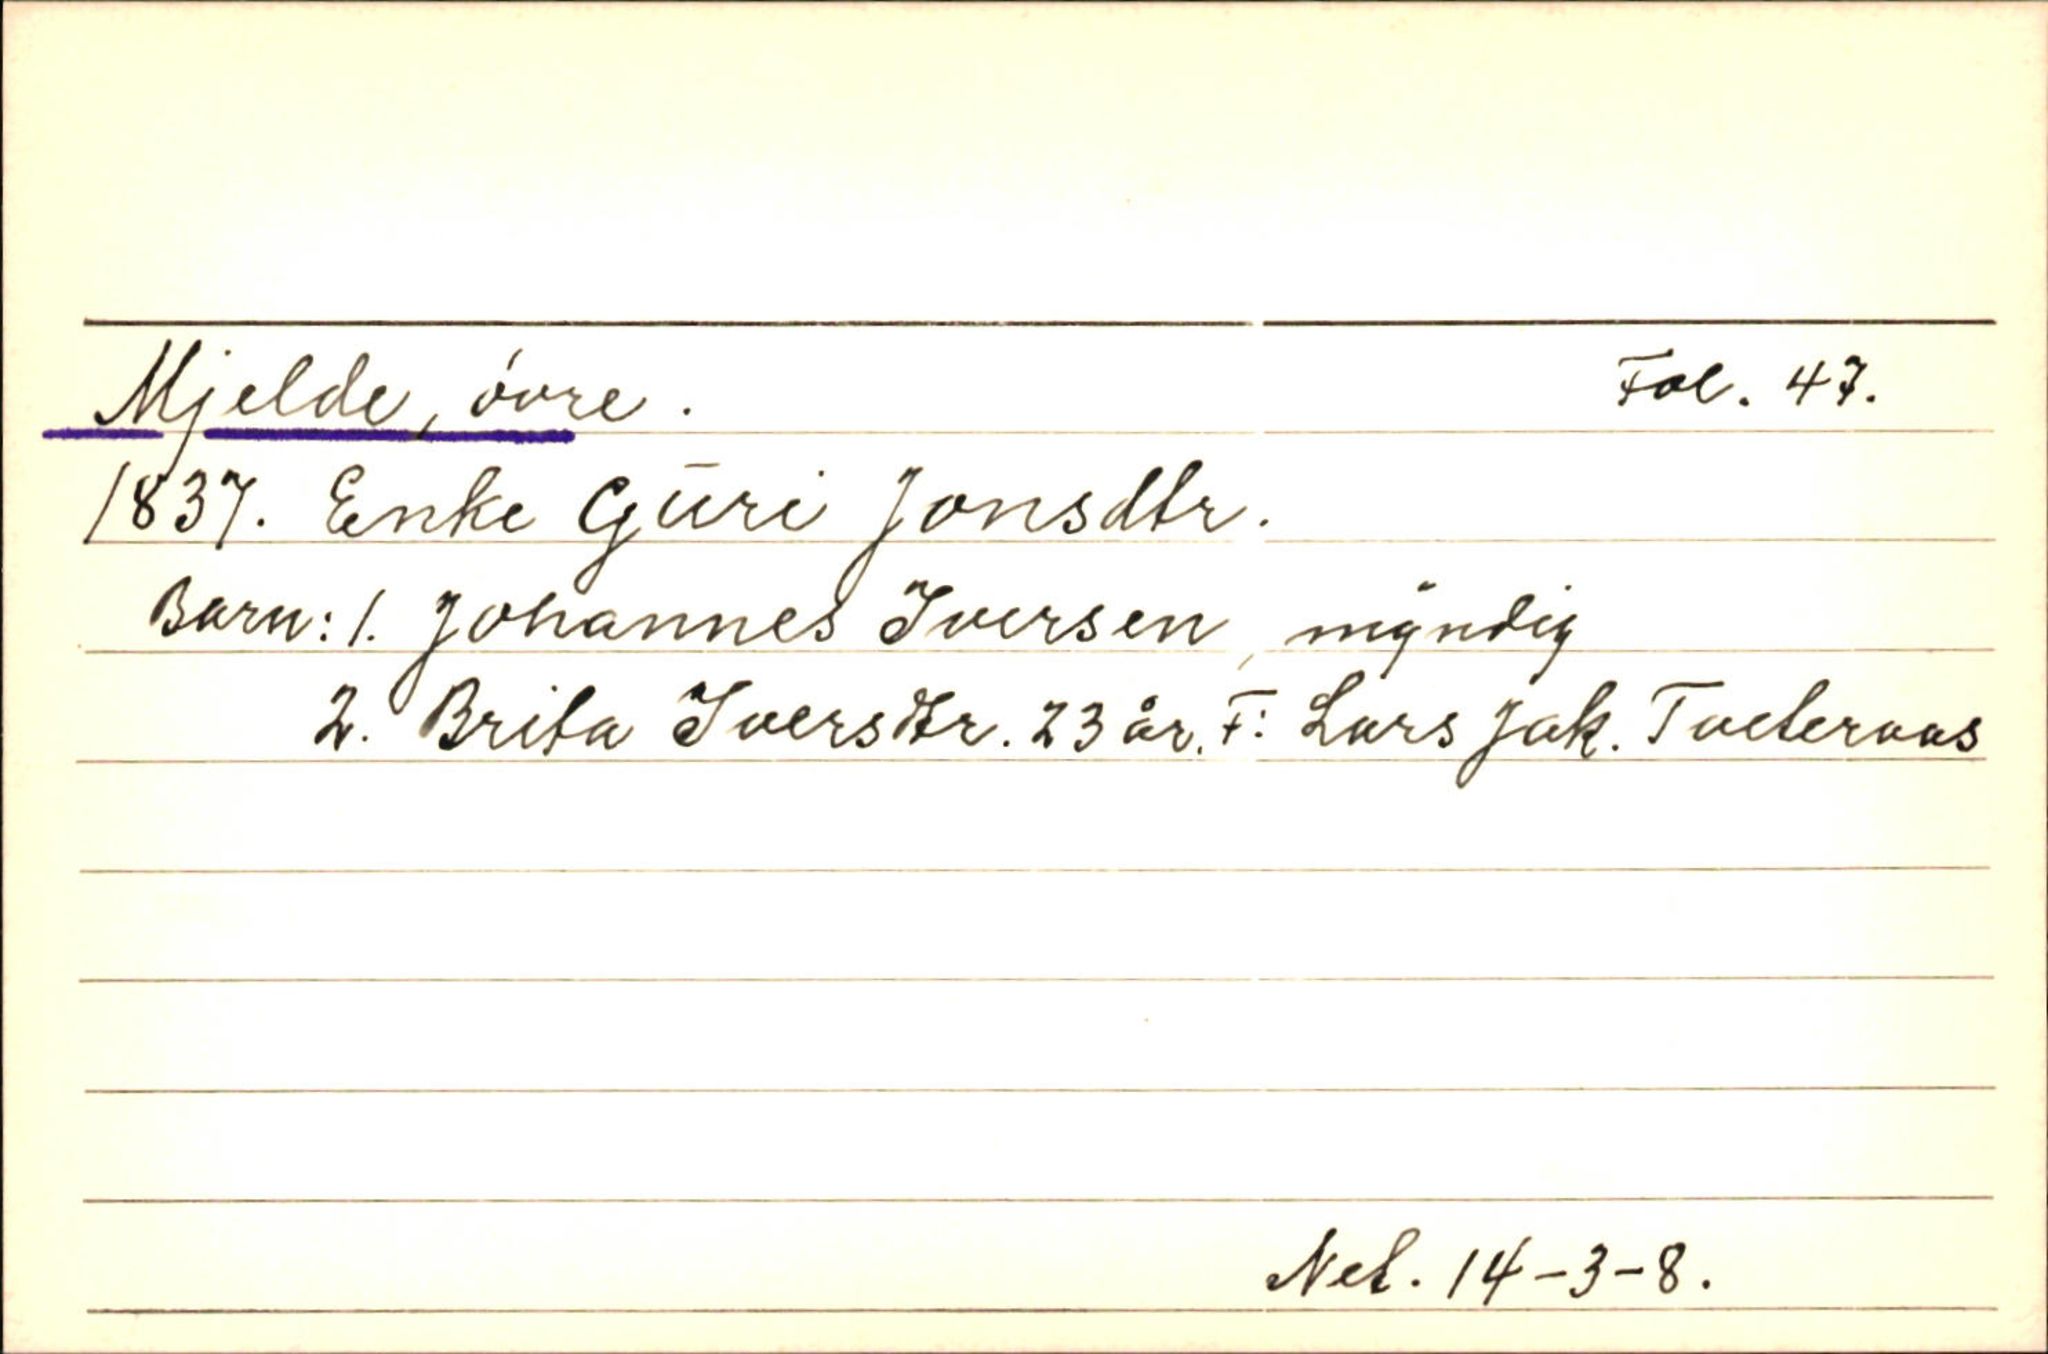 Mjelde, óvre. Fol. 47.
1837. Enke Guri Jonsdtr.
Barn: 1. Johannes Iversen, mÿndig
2. Brita Iversdtr. 23 år. F: Lars Jak. Tveteraas
Net. 14-3-8.